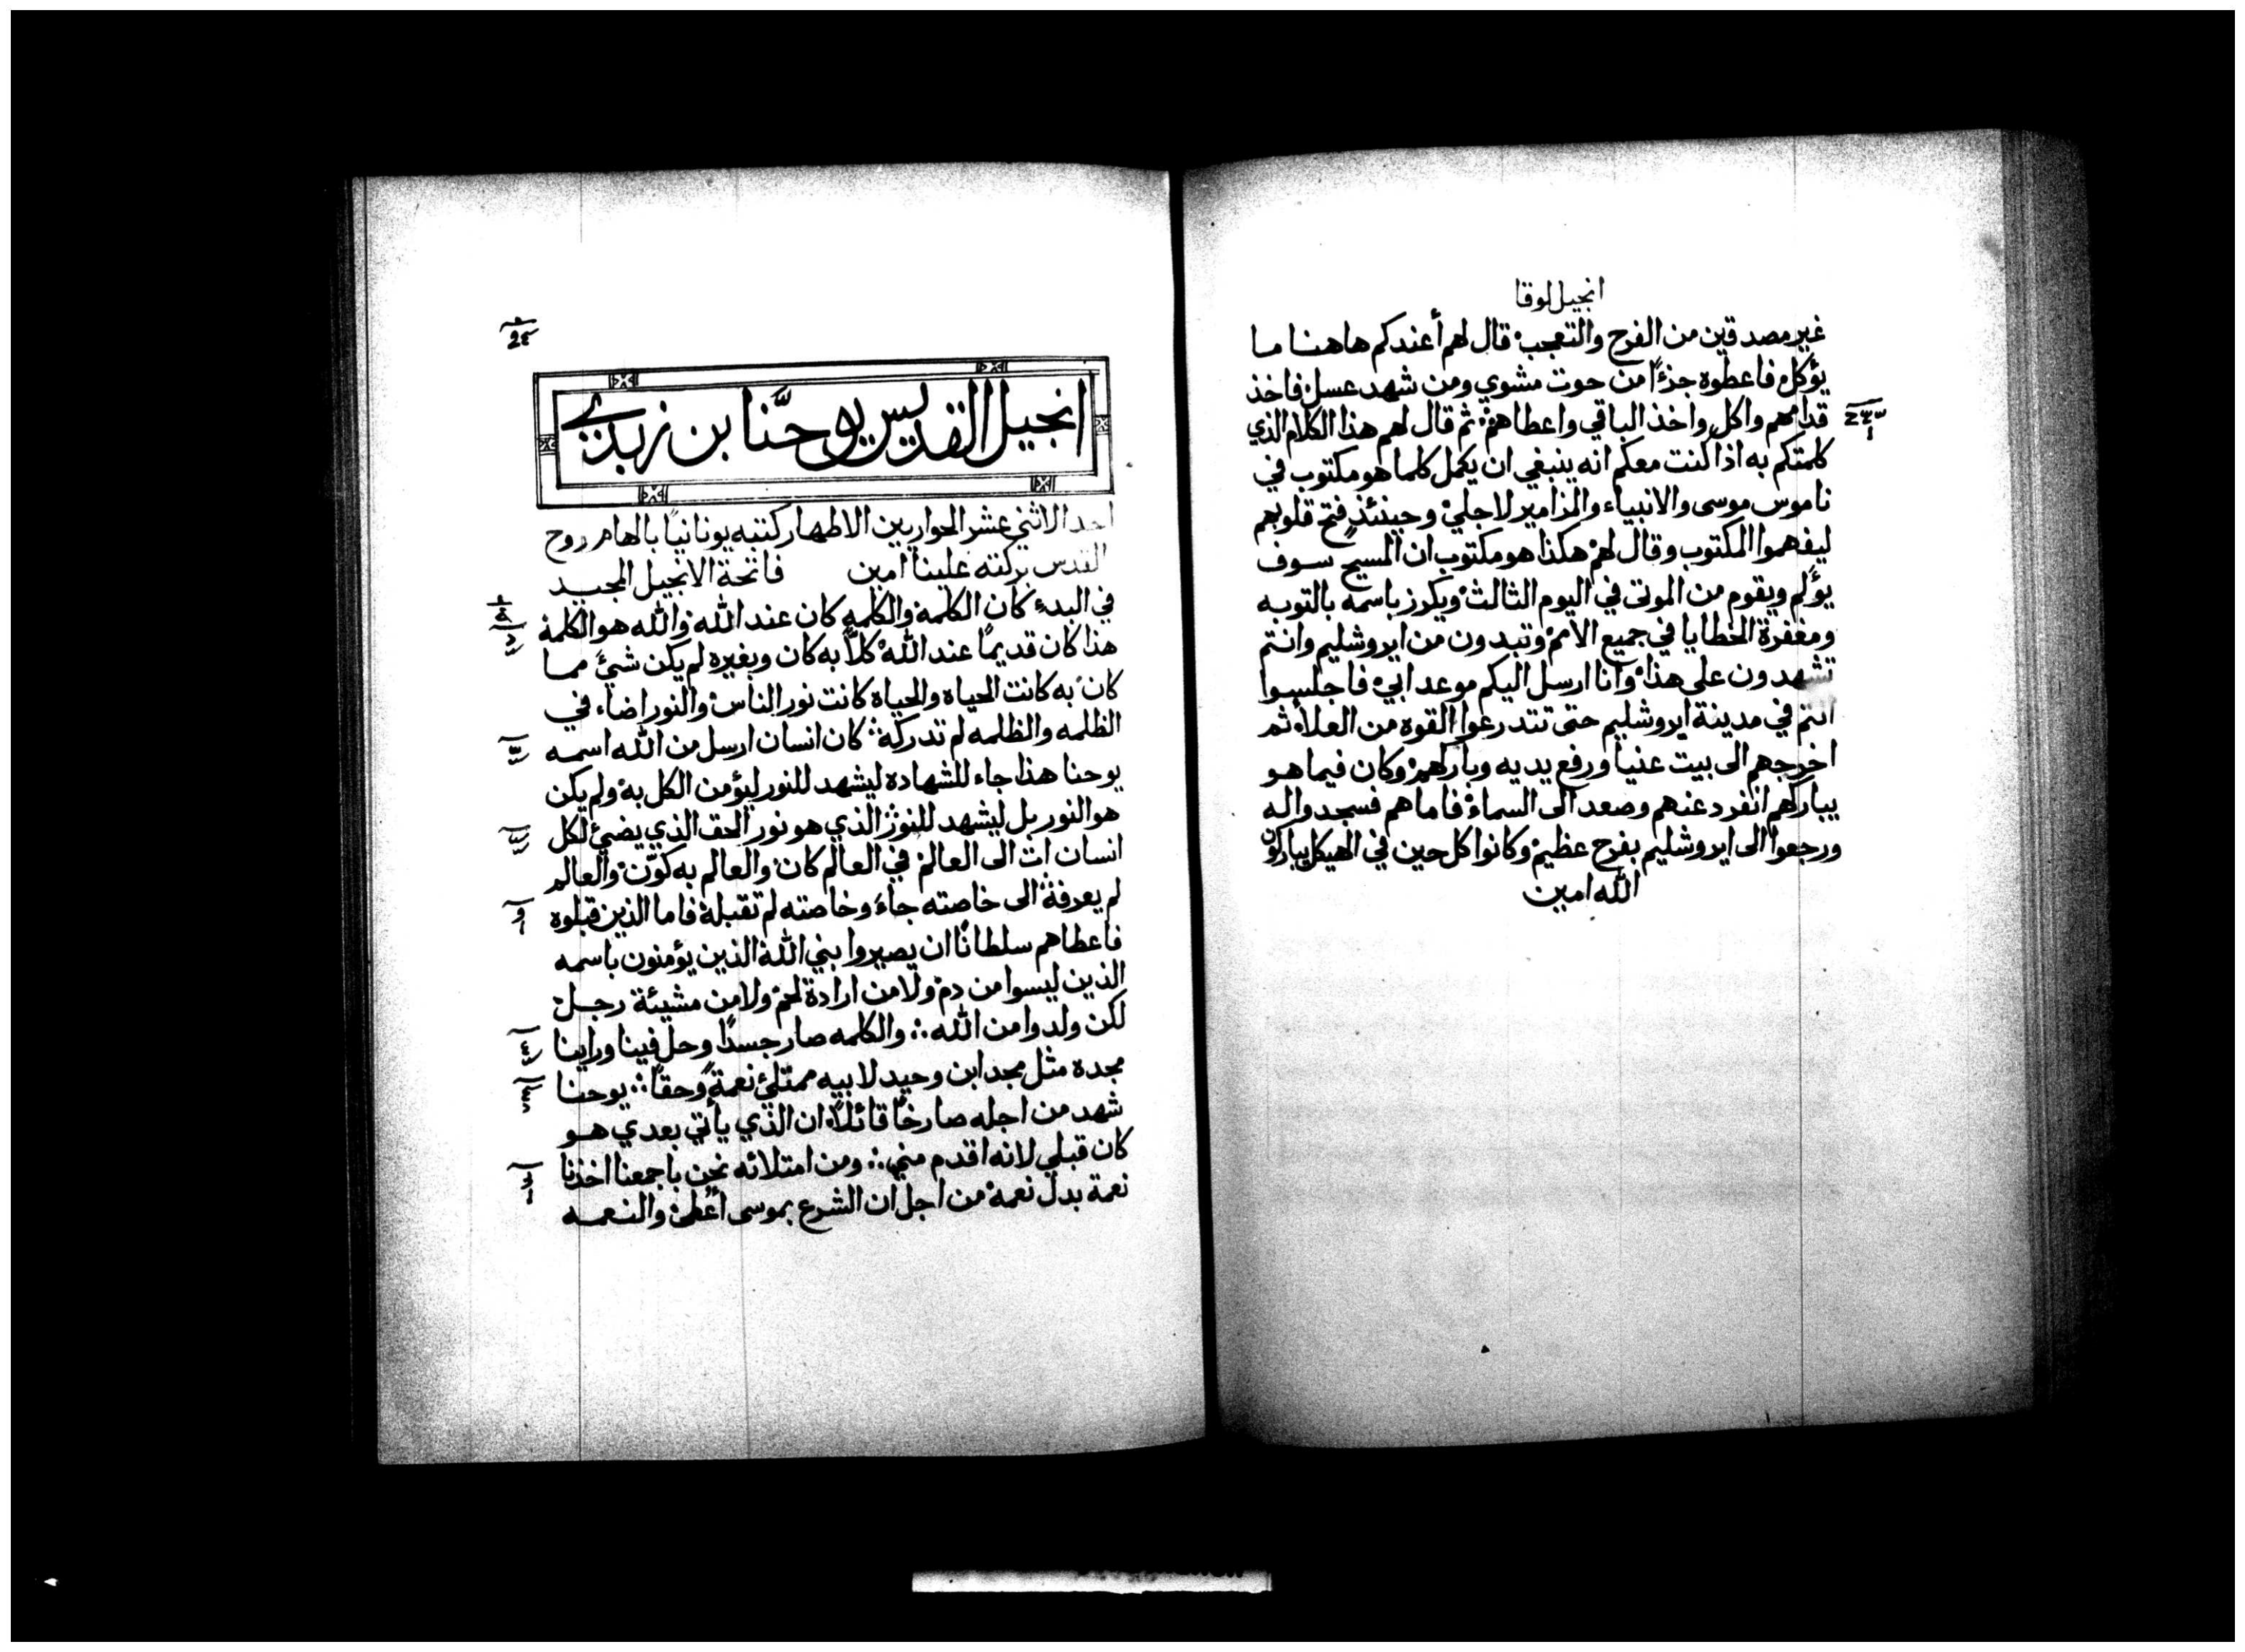 انجيل لوقا
غير مصدقين من الفرح والتعجب قال لهم أعندكم هاهنا ما
يؤكل فاعطوه جزءًا من حوت مشوي ومن شهد عسل فاخذ
قدامهم واكل واخذ الباقي واعطاهم ثم قال لهم هذا الكلام الذي
كلمتكم به اذا كنت معكم انه ينبغي ان يكمل كلما هو مكتوب في
ناموس موسى والانبياء والمزامير لاجلي وحينئذ فتح قلوبهم
ليفهموا المكتوب وقال لهم هكذا هو مكتوب ان المسيح سوف
يؤلم ويقوم من الموتى في اليوم الثالث ويكرز باسمه بالتوبه
ومغفرة الخطايا في جميع الامم وتبدون من ايروشليم وانتم
تشهدون على هذا وانا ارسل اليكم موعد ابي فاجلسوا
انتم في مدينة ايروشليم حتى تتدرعوا القوه من العلاء ثم
اخرجهم الى بيت عنيا ورفع يديه وباركهم وكان فيما هو
يباركهم انفرد عنهم وصعد الى السماء فاما هم فسجدوا له
ورجعوا الى ايروشليم بفرح عظيم وكانوا كل حين في الهيكل يباركون
الله امين
انجيل القديس يوحنَّا بن زبدي
احد الاثني عشر الحواريين الاطهار كتبه يونانيًا بالهام روح
القدس بركته علينا امين فاتحة الانجيل المجيد
في البدء كان الكلمة والكلمه كان عند الله والله هو الكلمة
هذا كان قديمًا عند الله كلاً به كان وبغيره لم يكن شيء مما
كان به كانت الحياه والحياه كانت نور الناس والنور اضاء في
الظلمه والظلمه لم تدركه كان انسان ارسل من الله اسمه
يوحنا هذا جاء للشهاده ليشهد للنور ليؤمن الكل به ولم يكن
هو النور بل ليشهد للنور الذي هو نور الحق الذي يضيء لكل
انسان ات الى العالم في العالم كان والعالم به كوّن والعالم
لم يعرفه الى خاصته جاء وخاصته لم تقبله فاما الذين قبلوه
فاعطاهم سلطانًا ان يصيروا بني الله الذين يؤمنون باسمه
الذين ليسوا من دم ولا من ارادة لحم ولا من مشيئة رجل
لكن ولدوا من الله والكلمه صار جسدًا وحل فينا وراينا
مجده مثل مجد ابن وحيد لابيه ممتلئ نعمةً وحقًا يوحنا
شهد من اجله صارخًا قائلاً ان الذي يأتي بعدي هو
كان قبلي لانه اقدم مني ومن امتلائه نحن باجمعنا اخذنا
نعمة بدل نعمة من اجل ان الشرع بموسى أعطى والنعمه